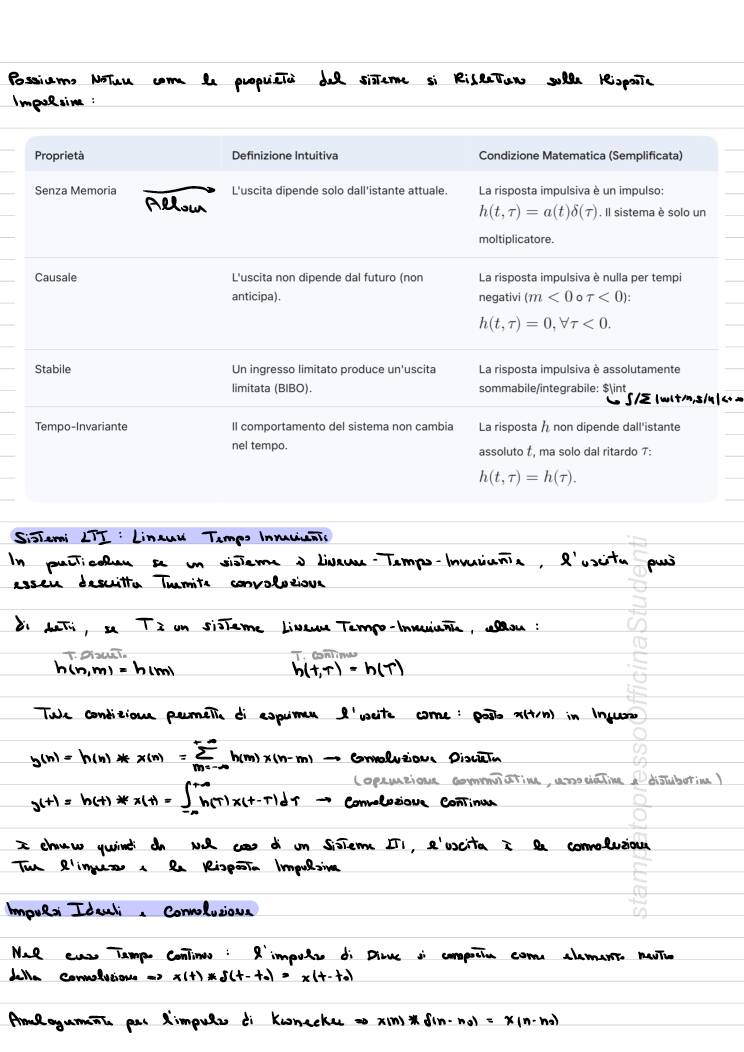 Possiamo Notare come le proprietà del sistema si Riflettano sulla Risposta
Impulsiva :
Proprietà Definizione Intuitiva Condizione Matematica (Semplificata)
Senza Memoria Allora L'uscita dipende solo dall'istante attuale. La risposta impulsiva è un impulso:
h(t, τ) = a(t)δ(τ). Il sistema è solo un
moltiplicatore.
Causale L'uscita non dipende dal futuro (non La risposta impulsiva è nulla per tempi
anticipa). negativi (m < 0 o τ < 0):
h(t, τ) = 0, ∀τ < 0.
Stabile Un ingresso limitato produce un'uscita La risposta impulsiva è assolutamente
limitata (BIBO). sommabile/integrabile: $\int
Tempo-Invariante Il comportamento del sistema non cambia La risposta h non dipende dall'istante
nel tempo. assoluto t, ma solo dal ritardo τ:
h(t, τ) = h(τ).
Sistemi LTI : Lineari Tempo Invarianti
In particolare se un sistema è Lineare-Tempo-Invariante, l'uscita può
essere descritta Tramite convoluzione
Di fatti, se T è un sistema Lineare Tempo-Invariante, allora :
T. Discreto T. Continuo
h(n,m) = h(m) h(t,τ) = h(τ)
Tale condizione permette di esprimere l'uscita come : posto x(t/n) in Ingresso
y(n) = h(n) * x(n) = ∑ m=-∞ +∞ h(m) x(n-m) → Convoluzione Discreta
(operazione commutativa, associativa e distributiva)
y(t) = h(t) * x(t) = ∫ -∞ +∞ h(τ) x(t-τ) dτ → Convoluzione Continua
È chiaro quindi che nel caso di un Sistema LTI, l'uscita è la convoluzione
Tra l'ingresso e la Risposta Impulsiva
Impulsi Ideali e Convoluzione
Nel caso Tempo Continuo : l'impulso di Dirac si comporta come elemento neutro
della convoluzione => x(t) * δ(t-t₀) = x(t-t₀)
Analogamente per l'impulso di Kronecker => x(n) * δ(n-n₀) = x(n-n₀)
stampatopressoOfficinaStudenti